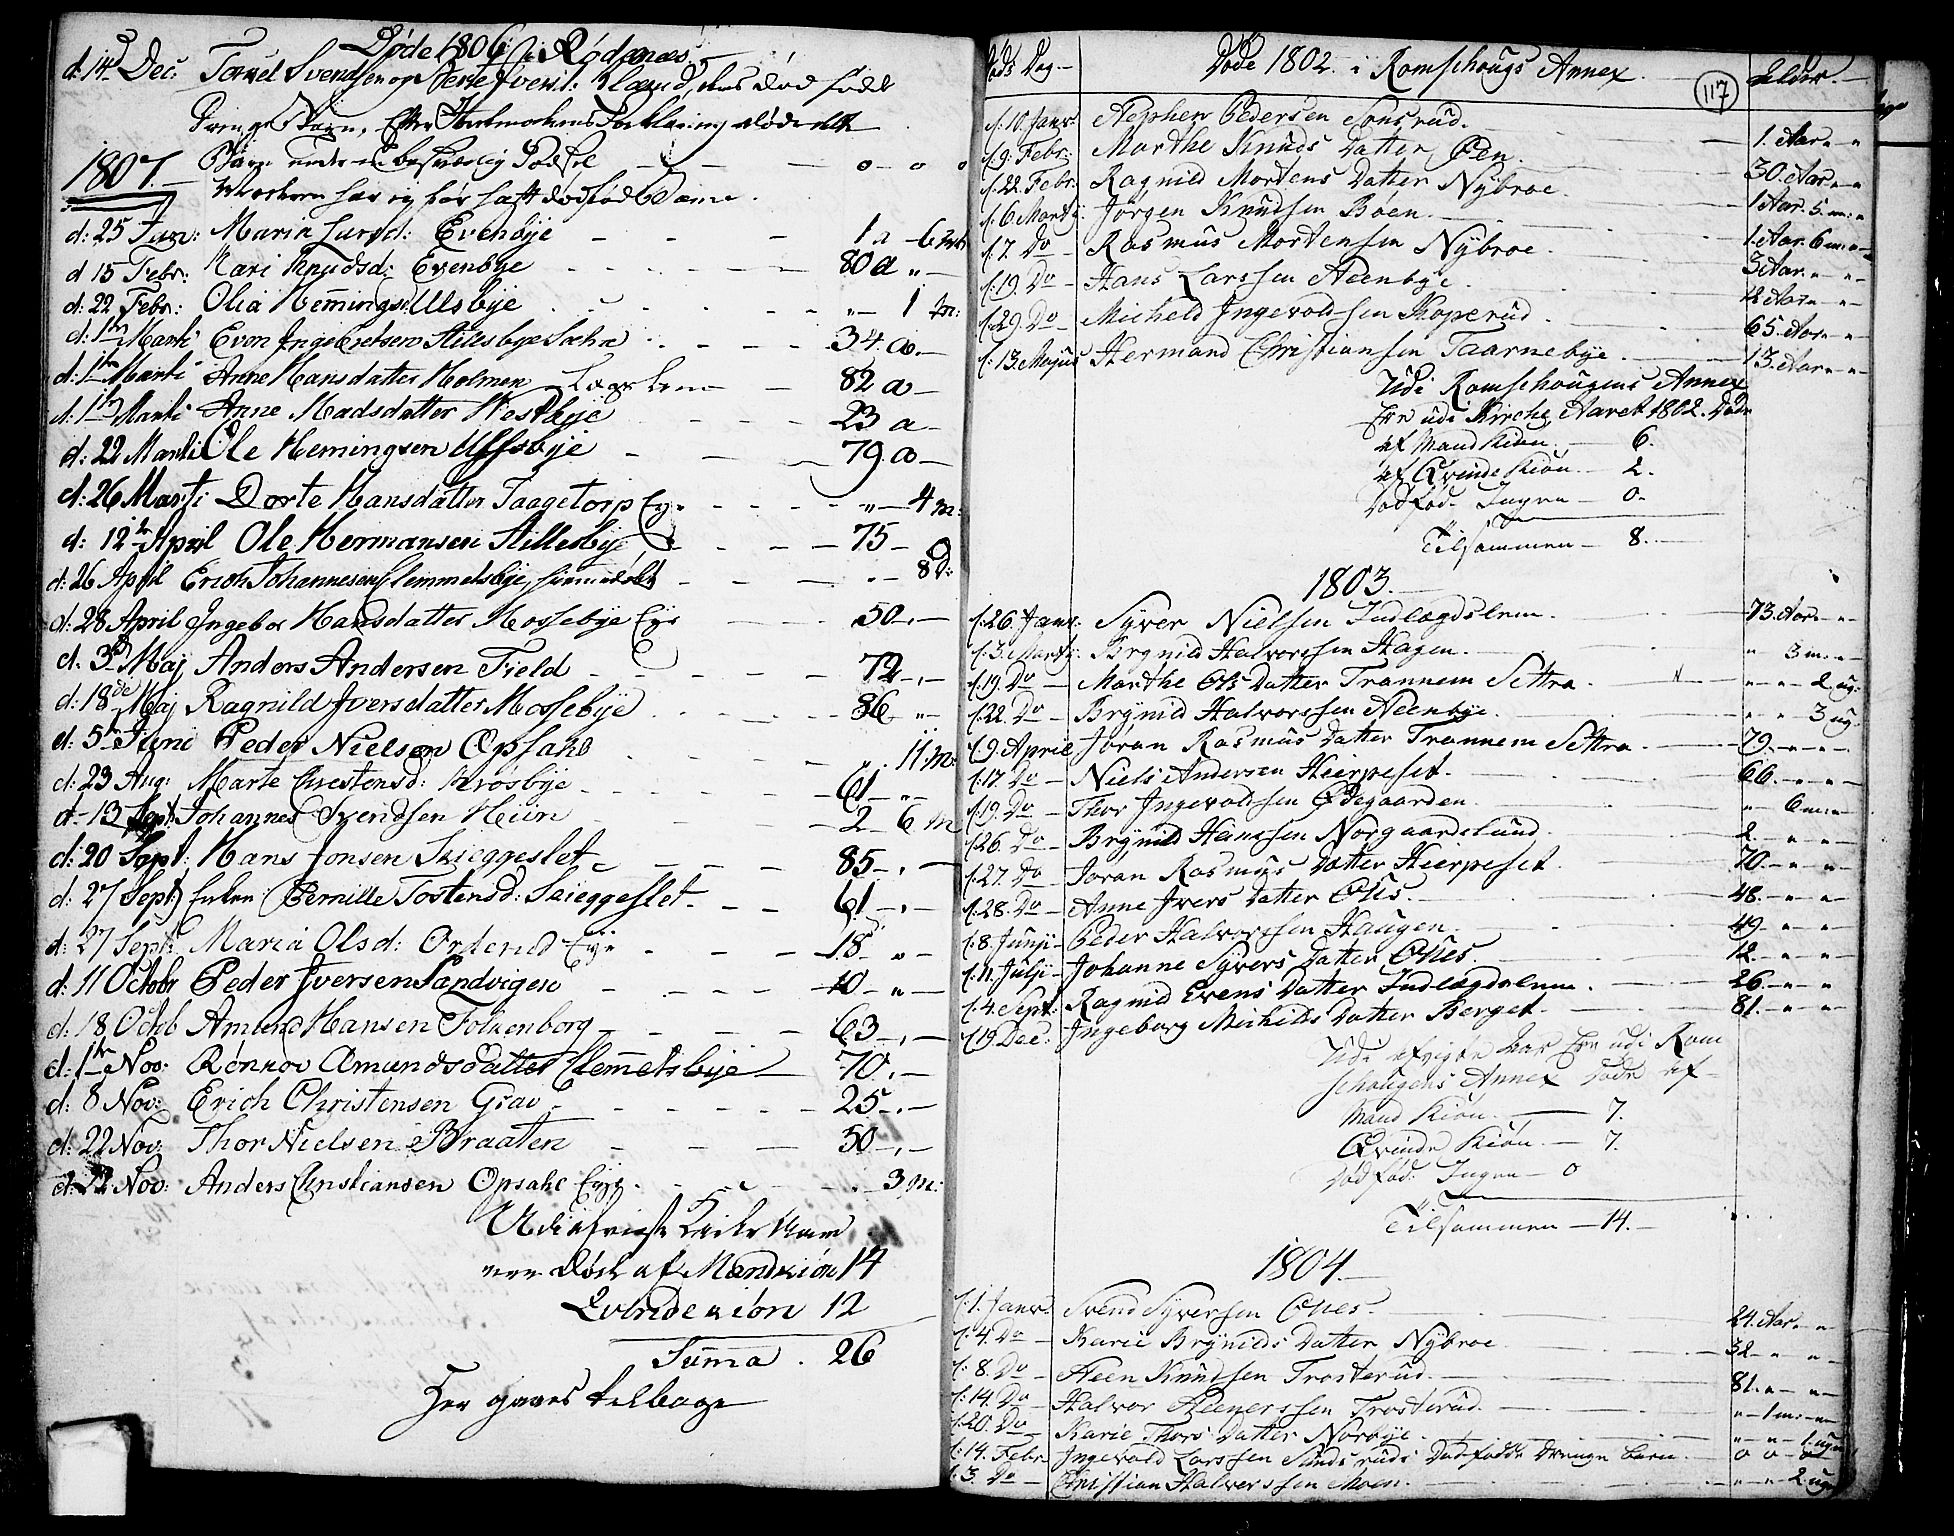 Døde 1806 i Rødenæs
d: 14 Dec: Svendsen og Iversd:
Børn
1807.
d: 25 Jan: Maria Larsd: Evenbye 1 a - 6 m
d 15 Febr: Kari Knudsd: Evenbye 80 a „ -
d: 22 Febr: Olia Hemingsd: Ulsbye „ - 1 m:
d: 1 Marti Even Ingebretsen Hillesbye 34. a. -
d: 1 Marti Anne Hansdatter Holmen 82 a -
d: 1 Marti Anne Madsdatter Westbye 23 a -
d: 22 Marti Ole Hemingsen Ulfsbye 79. a -
d: 26 Marti Dorte Hansdatter Taagetorp Eye „ - 4 m:
d: 12 April Ole Hermansen Hillesbye 75 -
d: 26 April Erich Johannesen Clemmetsbye, 8 D:
d: 28 April Ingebor Hansdatter Mossebye Eye 50 . -
d. 3 Maj Anders Andersen Field 72 -
d: 18de Maj Ragnild Iversdatter Mossebye 86 „ -
d: 5 Juni Peder Nielsen Opsahl 11 m:
d: 23 Aug: Marte Chrestensd: Krosbye 61 - „ -
d - 13 Sept: Johannes Svendsen Heiin 2 - 6 m
d: 20 Sept: Hans Jonsen Skieggeslet 85 - . -
d: 27 Sept: Enken Pernille Tostensd: Skieggeslet 61 - . -
d: 27 Sept: Maria Olsd: Ordend Eye 18 „ -
d: 11 Octobr Peder Iversen Sandvigen 10 - „ -
d: 18 Octb Amund Hansen Folkenborg 63 . -
d: 1 Nov: Rønnov Amundsdatter Clemetsbye 70 . -
d: 8 Nov: Erich Christensen Grav 25 - . -
d: 22 Nov: Thor Nielsen Braaten 50 - . -
d: 22 Nov: Anders Christiansen Opsahl Eye 3 m:
døde af Mandkiön 14
Qvindekiön 12
Suma . 26
Her gaaes tilbage
Døds Dag. Døde 1802. i Romschougs Annex. 117 Alder.
d. 10. Janr. Stephen Pedersen Sonsrud. 1. Aar „ „
d. 9. Febr. Marthe Knuds Datter Øen. 30. Aar „ „
d. 22. Febr. Ragnild Mortens Datter Nybroe. 1 Aar. 5 m: „
d. 6 Martj. Jørgen Knudsen Bøen. 1. Aar. 6 m: „
d. 7. Do Rasmus Mortensen Nybroe 3 Aar. „ „
d. 19. Do Hans Larssen Steenbye. 12 Aar „ „
d. 29. Do Micheld Ingevoldsen Koperud 65. Aar „ „
d. 13. Majus Hermand Christiansen Taarnebye. 13. Aar „ „
Udi Romschougens Annex
Ere udi Kirche Aaret 1802. Døde
af Mand Kiön. - 6.
af Qvinde Kiön. - 2.
Dødfød. Ingen - 0.
Tilsammen - 8.
1803.
d. 26. Janr. Syver Nielsen Indlægdslem. 73. Aar „ „
d. 3. Martj. Brynild Halvorssen Hagen. „ 3 m: „
d. 19. Do Marthe Ols Datter Trannem Settra. „ „ 2 ug:
d. 22. Do Brynild Halvorssen Steenbye. „ „ 3 ug.
d. 9. April Joran Rasmus Datter Trannem Settra. 79. „ „
d. 17. Do Niels Andersen Heirpeset. 66. „ „
d. 19. Do Thor Ingevoldsen Ødegaarden. „ 6 m: „
d. 26. Do Brynild Hanssen Norgaardslund. 2. „ „
d. 27. Do Joran Rasmus Datter Heirpeset. 70. „ „
d. 28. Do Anne Ivers Datter Ones. 48. „ „
d. 8. Junji Peder Halvorssen Haugen. 49. „ „
d. 11. Julji Johanne Syvers Datter Ones. 12. „ „
d. 4. Sept. Ragnild Evens Datter Indlægdslem. 26. „ „
d. 19. Dec. Ingeborg Michilds Datter Berget. 81. „ „
Udi afvigte Aar Ere udi Rom
schougens Annex Døde af
Mand Kiön. - 7.
Qvinde Kiön. - 7.
Dødfød: Ingen - 0
Tilsammen - 14.
1804.
d. 1. Janr. Svend Syversen Ones. 24. Aar „ „
d. 4. Do Karie Brynilds Datter Nybroe. 32 „ „
d. 8. Do Steen Knudsen Trosterud. 81. „ „
d. 14. Do Halvor Steenerssen Trosterud. „ 1 m: „
d. 20. Do Karie Thors Datter Norbye. „ „ 1. uge
d. 14. Febr. Ingevold Larssen Sundsruds Dødfødde Drenge Barn. 0 0 0
d. 3. Do Christian Halvorssen Moen. „ „ 2 uge